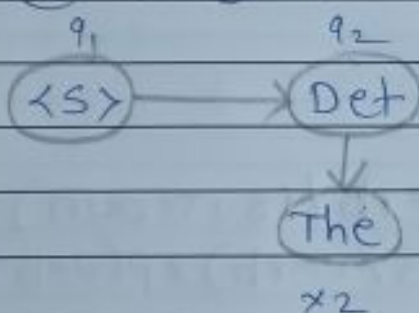 q1 q2
<S> Det
The
x2